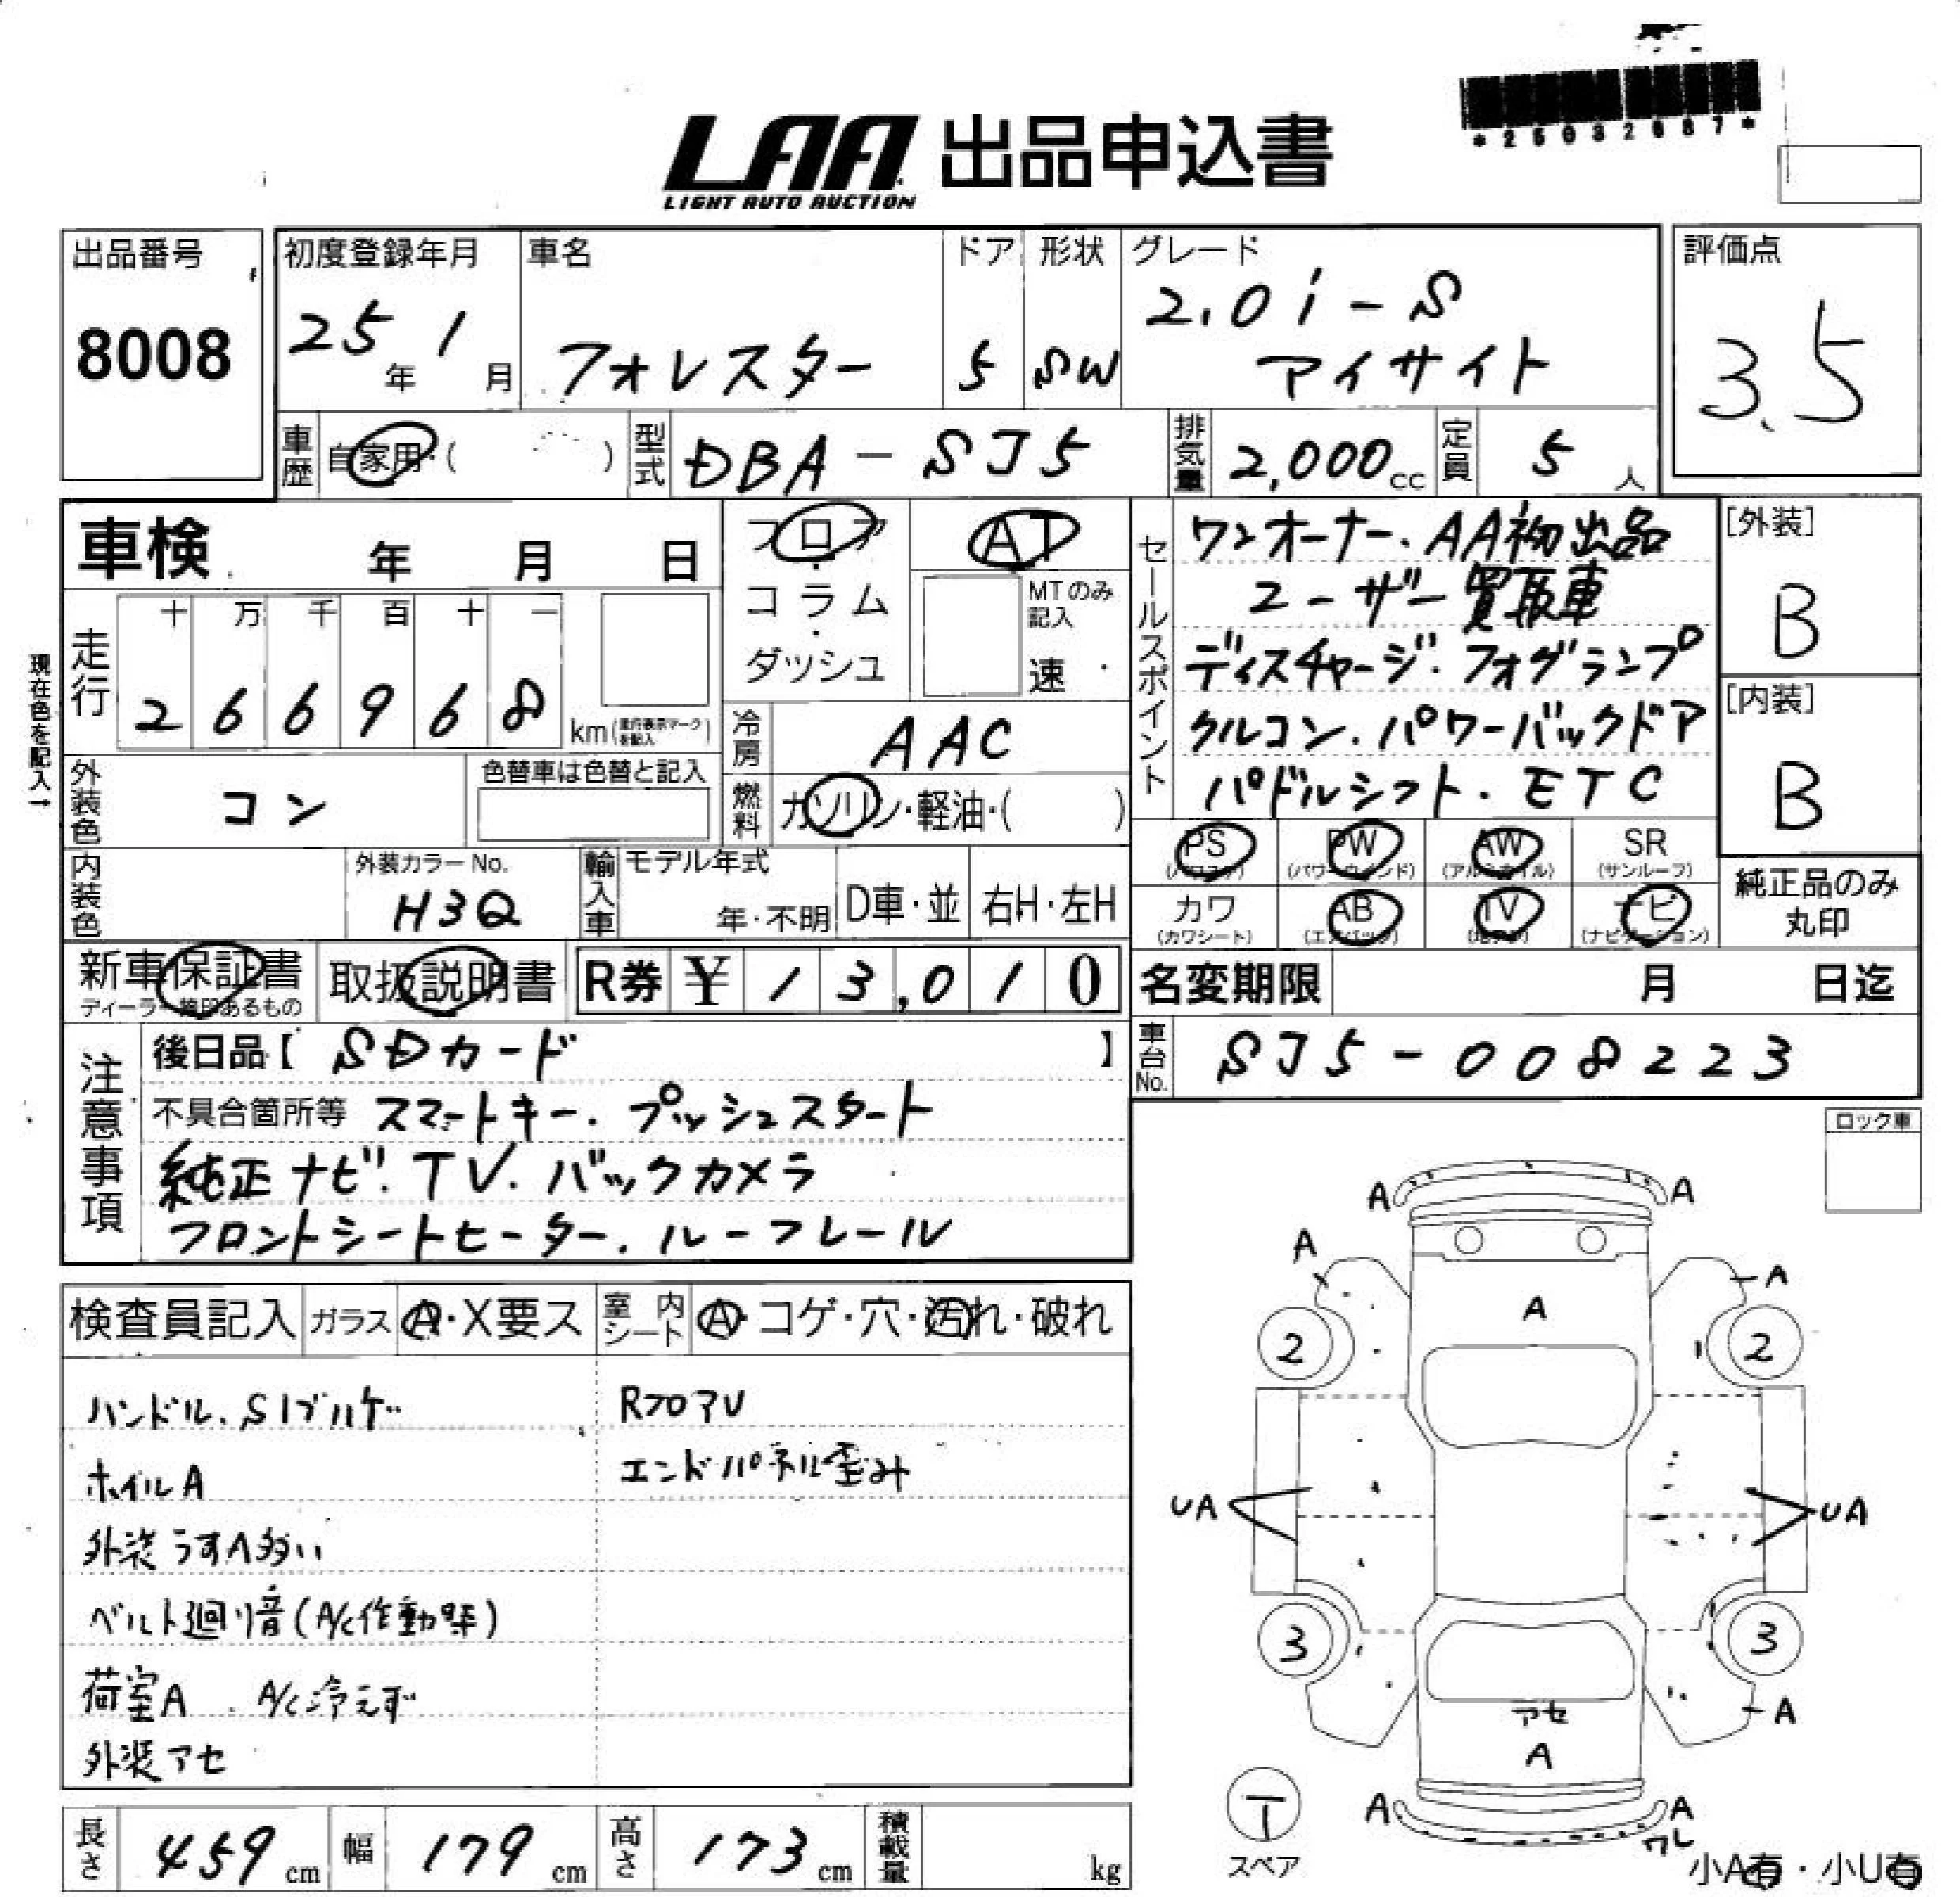 *25032687*
LAA 出品申込書
LIGHT AUTO AUCTION
出品番号
8008
初度登録年月
25年 1月
車名
フォレスター
ドア
5
形状
SW
グレード
2.0i-S
アイサイト
評価点
3.5
車歴 自家用・( )
型式 DBA-SJ5
排気量 2,000cc
定員 5人
車検 年 月 日
フロア・コラム・ダッシュ
AT
MTのみ記入
速
セールスポイント
ワンオーナー.AA初出品
ユーザー買取車
ディスチャージ.フォグランプ
クルコン.パワーバックドア
パドルシフト.ETC
[外装]
B
[内装]
B
現在色を記入→
走行
十 万 千 百 十 一
2 6 6 9 6 8 km
冷房 AAC
燃料 ガソリン・軽油・( )
外装色 コン
色替車は色替と記入
内装色
外装カラーNo.
H3Q
輸入車
モデル年式
年・不明
D車・並
右H・左H
PS (パワステ)
PW (パワーウインド)
AW (アルミホイル)
SR (サンルーフ)
カワ (カワシート)
AB (エアバック)
TV
ナビ (ナビゲーション)
純正品のみ
丸印
新車保証書
取扱説明書
R券 ¥13,010
名変期限 月 日迄
車台No. SJ5-008223
注意事項
後日品【 SDカード 】
不具合箇所等 スマートキー.プッシュスタート
純正ナビ.TV.バックカメラ
フロントシートヒーター.ルーフレール
ロック車
検査員記入
ガラス A・X要ス
室内シート A・コゲ・穴・汚れ・破れ
ハンドル、Sレブハゲ
ホイルA
外装うすA多い
ベルト廻り音(A/C作動時)
荷室A A/C冷えず
外装アセ
RフロアU
エンドパネル歪み
A A
A A
A
2 2
UA UA
3 3
アセ
A
A
A A
ワレ
T
スペア
小A有・小U有
長さ 459cm
幅 179cm
高さ 173cm
積載量 kg